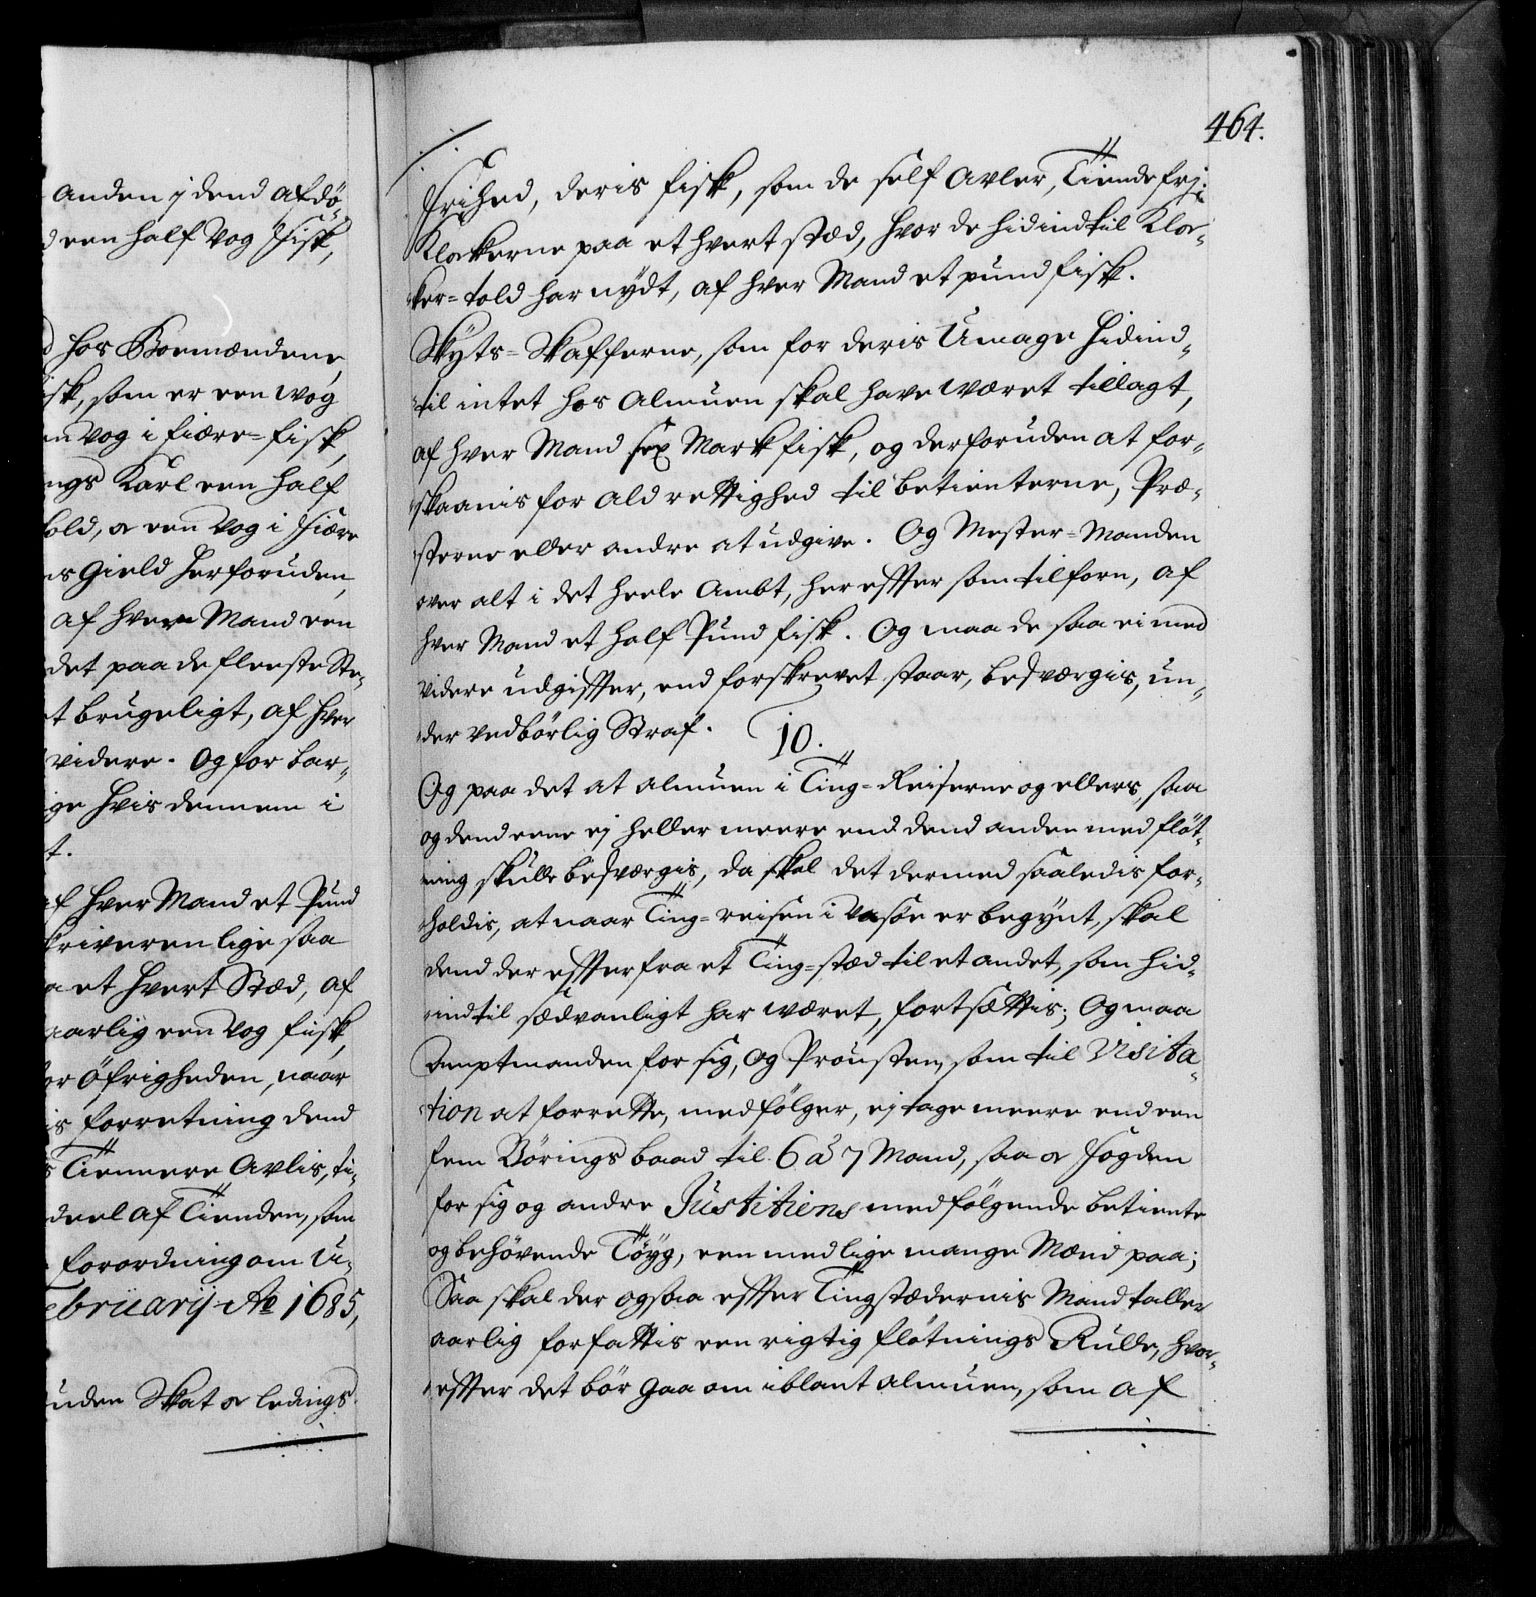 anden j dend afdø¸
een half Vog Fisk,
hos Boemændene,
isk, som er een Wog
en Vog i fiære=fisk,
ngs Karl een half
old, or een Vog i Fiære
es Gield herforuden,
af hver Mand een
det paa de fleeste Ste¸
t brugeligt, af hver
videre. Og for bar¸
ge hvis dennem i
t.
af hver Mand et Pund
kriveren lige saa
a et hvert Stæd, af
aarlig een Vog fisk,
or Öfrigheden, naar
is forretning dend
s Tiennere Avlis, ti¸
deel af Tienden, som
forordning om U¸
ebruarij Ao 1685,
uden Skat or Ledings
464.
Frihed, deris fisk, som de self Avler, Tiende frj:
Klockerne paa et hvert stæd, hvor de hidindtil Kloc¸
ker=told har nydt, af hver Mand et pund fisk.
Skyts=Skafferne, som for deris Umage hidind¸
til intet hos Almuen skal have Wæret tillagt,
af hver Mand sex Mark fisk, og derforuden at for¸
skaanis for ald rettighed til betienterne, Præ¸
sterne eller andre at udgive. Og Mester=Manden
over alt i det heele Ambt, her effter som tilforn, af
hver Mand et half Pund fisk. Og maa de saa ei med
videre udgiffter, end forskrevet staar, besværgis, un¸
der vedbörlig Straf.
10.
Og paa det at almuen i Ting=Reiserne og ellers, saa
og dend eene ej heller meere end dend anden med fløt¸
ning skulle besværgis, da skal det dermed saaledis for¸
holdis, at naar Ting=reisen i Vasöe er begynt, skal
dend der effter fra et Ting=stæd til et andet, som hid¸
indtil sædvanligt har Wæret, fortsættis; Og maa
Amptmanden for sig, og Prousten, som til Visita¸
tion at forrette, medfölger, ej tage meere end een
fem Börings baad til 6 à 7 Mand, saa or Fogden
for sig og andre Justitiens medfölgende betiente
og behövende Töyg, een med lige mange Mænd paa;
Saa skal der ogsaa effter Tingstædernis Mandtaller
aarlig forfattis een rigtig flötnings Rulle, hvor¸
effter det bör gaa om iblant almuen, som af